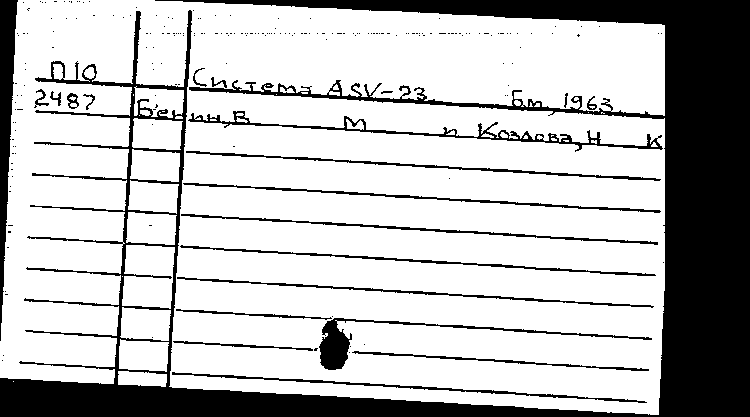 П10 Система ASV-23. Бм, 1963.
2487 Бенин, В М и Козлова, Н К